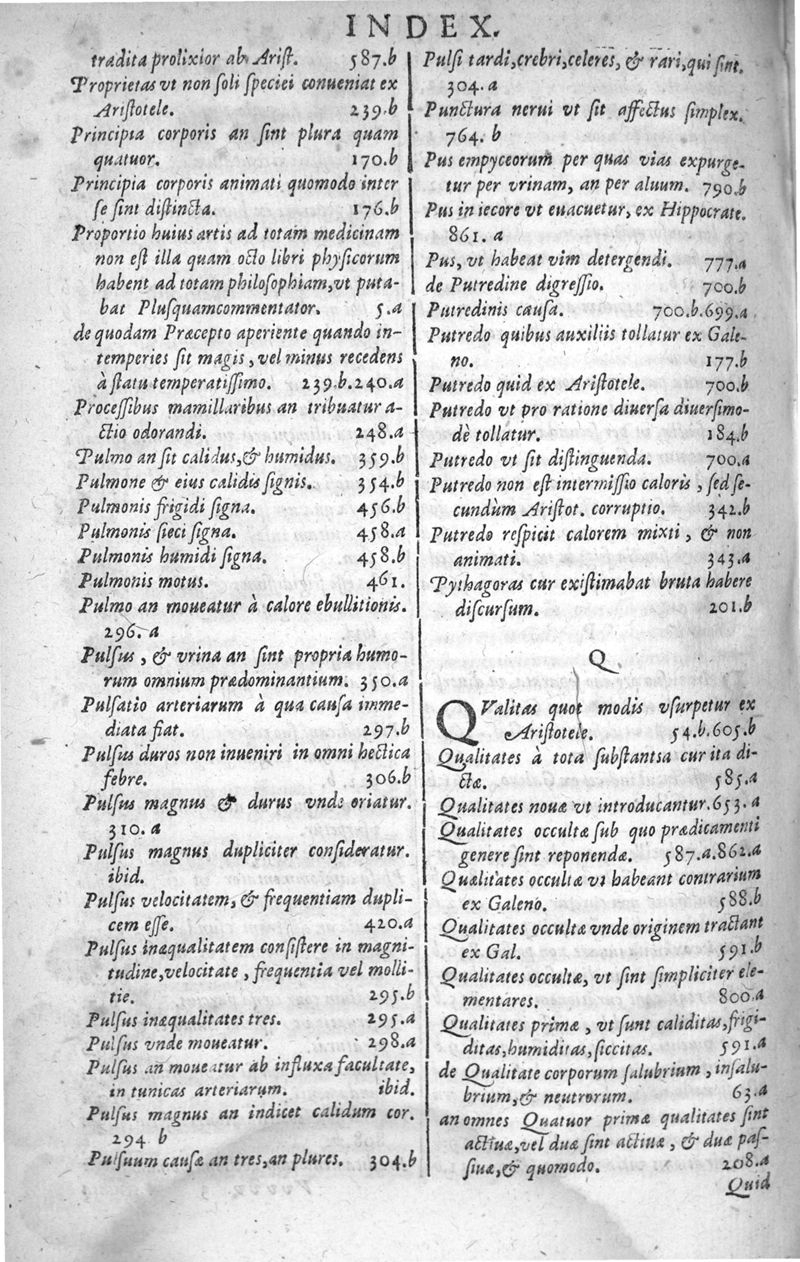 INDEX.
tradita prolixior ab Arist. 587.b
Proprietas vt non soli speciei conueniat ex
Aristotele. 239.b
Principia corporis an sint plura quam
quatuor. 170.b
Principia corporis animati quomodo inter
se sint distincta. 176.b
Proportio huius artis ad totam medicinam
non est illa quam octo libri physicorum
habent ad totam philosophiam, vt puta-
bat Plusquamcommentator. 5.a
de quodam Præcepto aperiente quando in-
temperies sit magis, vel minus recedens
à statu temperatissimo. 239.b.240.a
Processibus mamillaribus an tribuatur a-
ctio odorandi. 248.a
Pulmo an sit calidus, & humidus. 359.b
Pulmone & eius calidis signis. 354.b
Pulmonis frigidi signa. 456.b
Pulmonis sieci signa. 458.a
Pulmonis humidi signa. 458.b
Pulmonis motus. 461.
Pulmo an moueatur à calore ebullitionis.
296.a
Pulsus, & vrina an sint propria humo-
rum omnium prædominantium. 350.a
Pulsatio arteriarum à qua causa imme-
diata fiat. 297.b
Pulsus duros non inueniri in omni hectica
febre. 306.b
Pulsus magnus & durus vnde oriatur.
310.a
Pulsus magnus dupliciter consideratur.
ibid.
Pulsus velocitatem, & frequentiam dupli-
cem esse. 420.a
Pulsus inæqualitatem consistere in magni-
tudine, velocitate, frequentia vel molli-
tie. 295.b
Pulsus inæqualitates tres. 295.a
Pulsus vnde moueatur. 298.a
Pulsus an moueatur ab influxa facultate,
in tunicas arteriarum. ibid.
Pulsus magnus an indicet calidum cor.
294 b
Pulsuum causæ an tres, an plures. 304.b
Pulsi tardi, crebri, celeres, & rari, qui sint.
304.a
Punctura nerui vt sit affectus simplex.
764. b
Pus empyceorum per quas vias expurge-
tur per vrinam, an per aluum. 790.b
Pus in iecore vt euacuetur, ex Hippocrate.
861. a
Pus, vt habeat vim detergendi. 777.a
de Putredine digressio. 700.b
Putredinis causa. 700.b.699.a
Putredo quibus auxiliis tollatur ex Gale-
no. 177.b
Putredo quid ex Aristotele. 700.b
Putredo vt pro ratione diuersa diuersimo-
dè tollatur. 184.b
Putredo vt sit distinguenda. 700.a
Putredo non est intermissio caloris, sed se-
cundùm Aristot. corruptio. 342.b
Putredo respicit calorem mixti, & non
animati. 343.a
Pythagoras cur existimabat bruta habere
discursum. 201.b
Q.
QValitas quot modis vsurpetur ex
Aristotele. 54.b.605.b
Qualitates à tota substantsa cur ita di-
ctæ. 585.a
Qualitates nouæ vt introducantur. 653.a
Qualitates occultæ sub quo prædicamenti
genere sint reponendæ. 587.a.862.a
Qualitates occultæ vt habeant contrarium
ex Galeno. 588.b
Qualitates occultæ vnde originem tractant
ex Gal. 591.b
Qualitates occultæ, vt sint simpliciter ele-
mentares. 800.a
Qualitates primæ, vt sunt caliditas, frigi-
ditas, humiditas, siccitas. 591.a
de Qualitate corporum salubrium, insalu-
brium, & neutrorum. 63.a
an omnes Quatuor primæ qualitates sint
actiuæ, vel duæ sint actiuæ, & duæ pas-
siuæ, & quomodo. 208.a
Quid